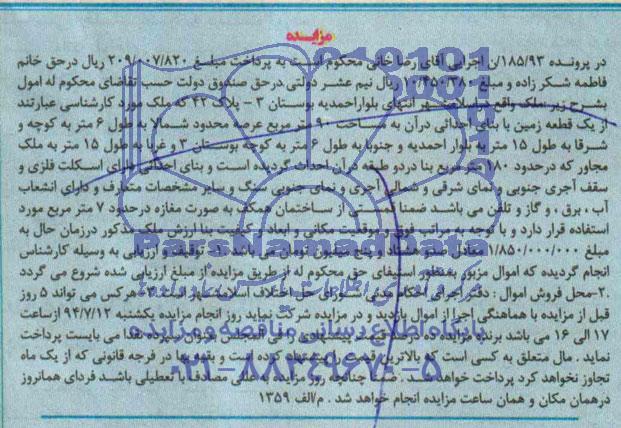 مزایده
در پرونده ۱۸۵/۹۳/ن اجرایی آقای رضا خانی محکوم است به پرداخت مبلغ ۲۰۹/۰۰۷/۸۲۰ ریال درحق خانم
فاطمه شکر زاده و مبلغ ۱۰/۴۵۰/۳۸۰ ریال نیم عشر دولتی درحق صندوق دولت حسب تقاضای محکوم له اموال
بشرح زیر ملک واقع در اسلامشهر انتهای بلواراحمدیه بوستان ۳ - پلاک ۴۲ که ملک مورد کارشناسی عبارتند
از یک قطعه زمین با بنای احداثی درآن به مساحت ۹۰ متر مربع عرصه محدود شمالا به طول ۶ متر به کوچه و
شرقا به طول ۱۵ متر به بلوار احمدیه و جنوبا به طول ۶ متر به کوچه بوستان ۳ و غربا به طول ۱۵ متر به ملک
مجاور که درحدود ۱۸۰ متر مربع بنا دردو طبقه درآن احداث گردیده است و بنای احداثی دارای اسکلت فلزی و
سقف آجری جنوبی و نمای شرقی و شمالی آجری و نمای جنوبی سنگ و سایر مشخصات متعارف و دارای انشعاب
آب ، برق ، و گاز و تلفن می باشد ضمنا قسمتی از ساختمان همکف به صورت مغازه درحدود ۷ متر مربع مورد
استفاده قرار دارد و با توجه به مراتب فوق و موقعیت مکانی و ابعاد و کیفیت بنا ارزش ملک مذکور درزمان حال به
مبلغ ۱/۸۵۰/۰۰۰/۰۰۰ معادل صدو هشتاد و پنج میلیون تومان می باشد که توقیف و ارزیابی به وسیله کارشناس
انجام گردیده که اموال مزبور به منظور استیفای حق محکوم له از طریق مزایده از مبلغ ارزیابی شده شروع می گردد
.۲-محل فروش اموال : دفتر اجرای احکام مدنی شورای حل اختلاف اسلامشهر است ۳-هرکس می تواند ۵ روز
قبل از مزایده با هماهنگی اجرا از اموال بازدید و در مزایده شرکت نماید روز انجام مزایده یکشنبه ۹۴/۷/۱۲ ازساعت
۱۷ الی ۱۶ می باشد برنده مزایده ده درصد قیمت پیشنهادی را فی المجلس بعنوان سپرده نقدا می بایست پرداخت
نماید . مال متعلق به کسی است که بالاترین قیمت را پیشنهاد کرده است و بقیه بها در فرجه قانونی که از یک ماه
تجاوز نخواهد کرد پرداخت خواهد شد . ضمنا چنانچه روز مزایده به عللی مصادف با تعطیلی باشد فردای همانروز
درهمان مکان و همان ساعت مزایده انجام خواهد شد . م/الف ۱۳۵۹
ParsNamadData
پایگاه اطلاع رسانی مناقصه و مزایده
۰۲۱-۸۸۳۴۹۶۷۰-۵